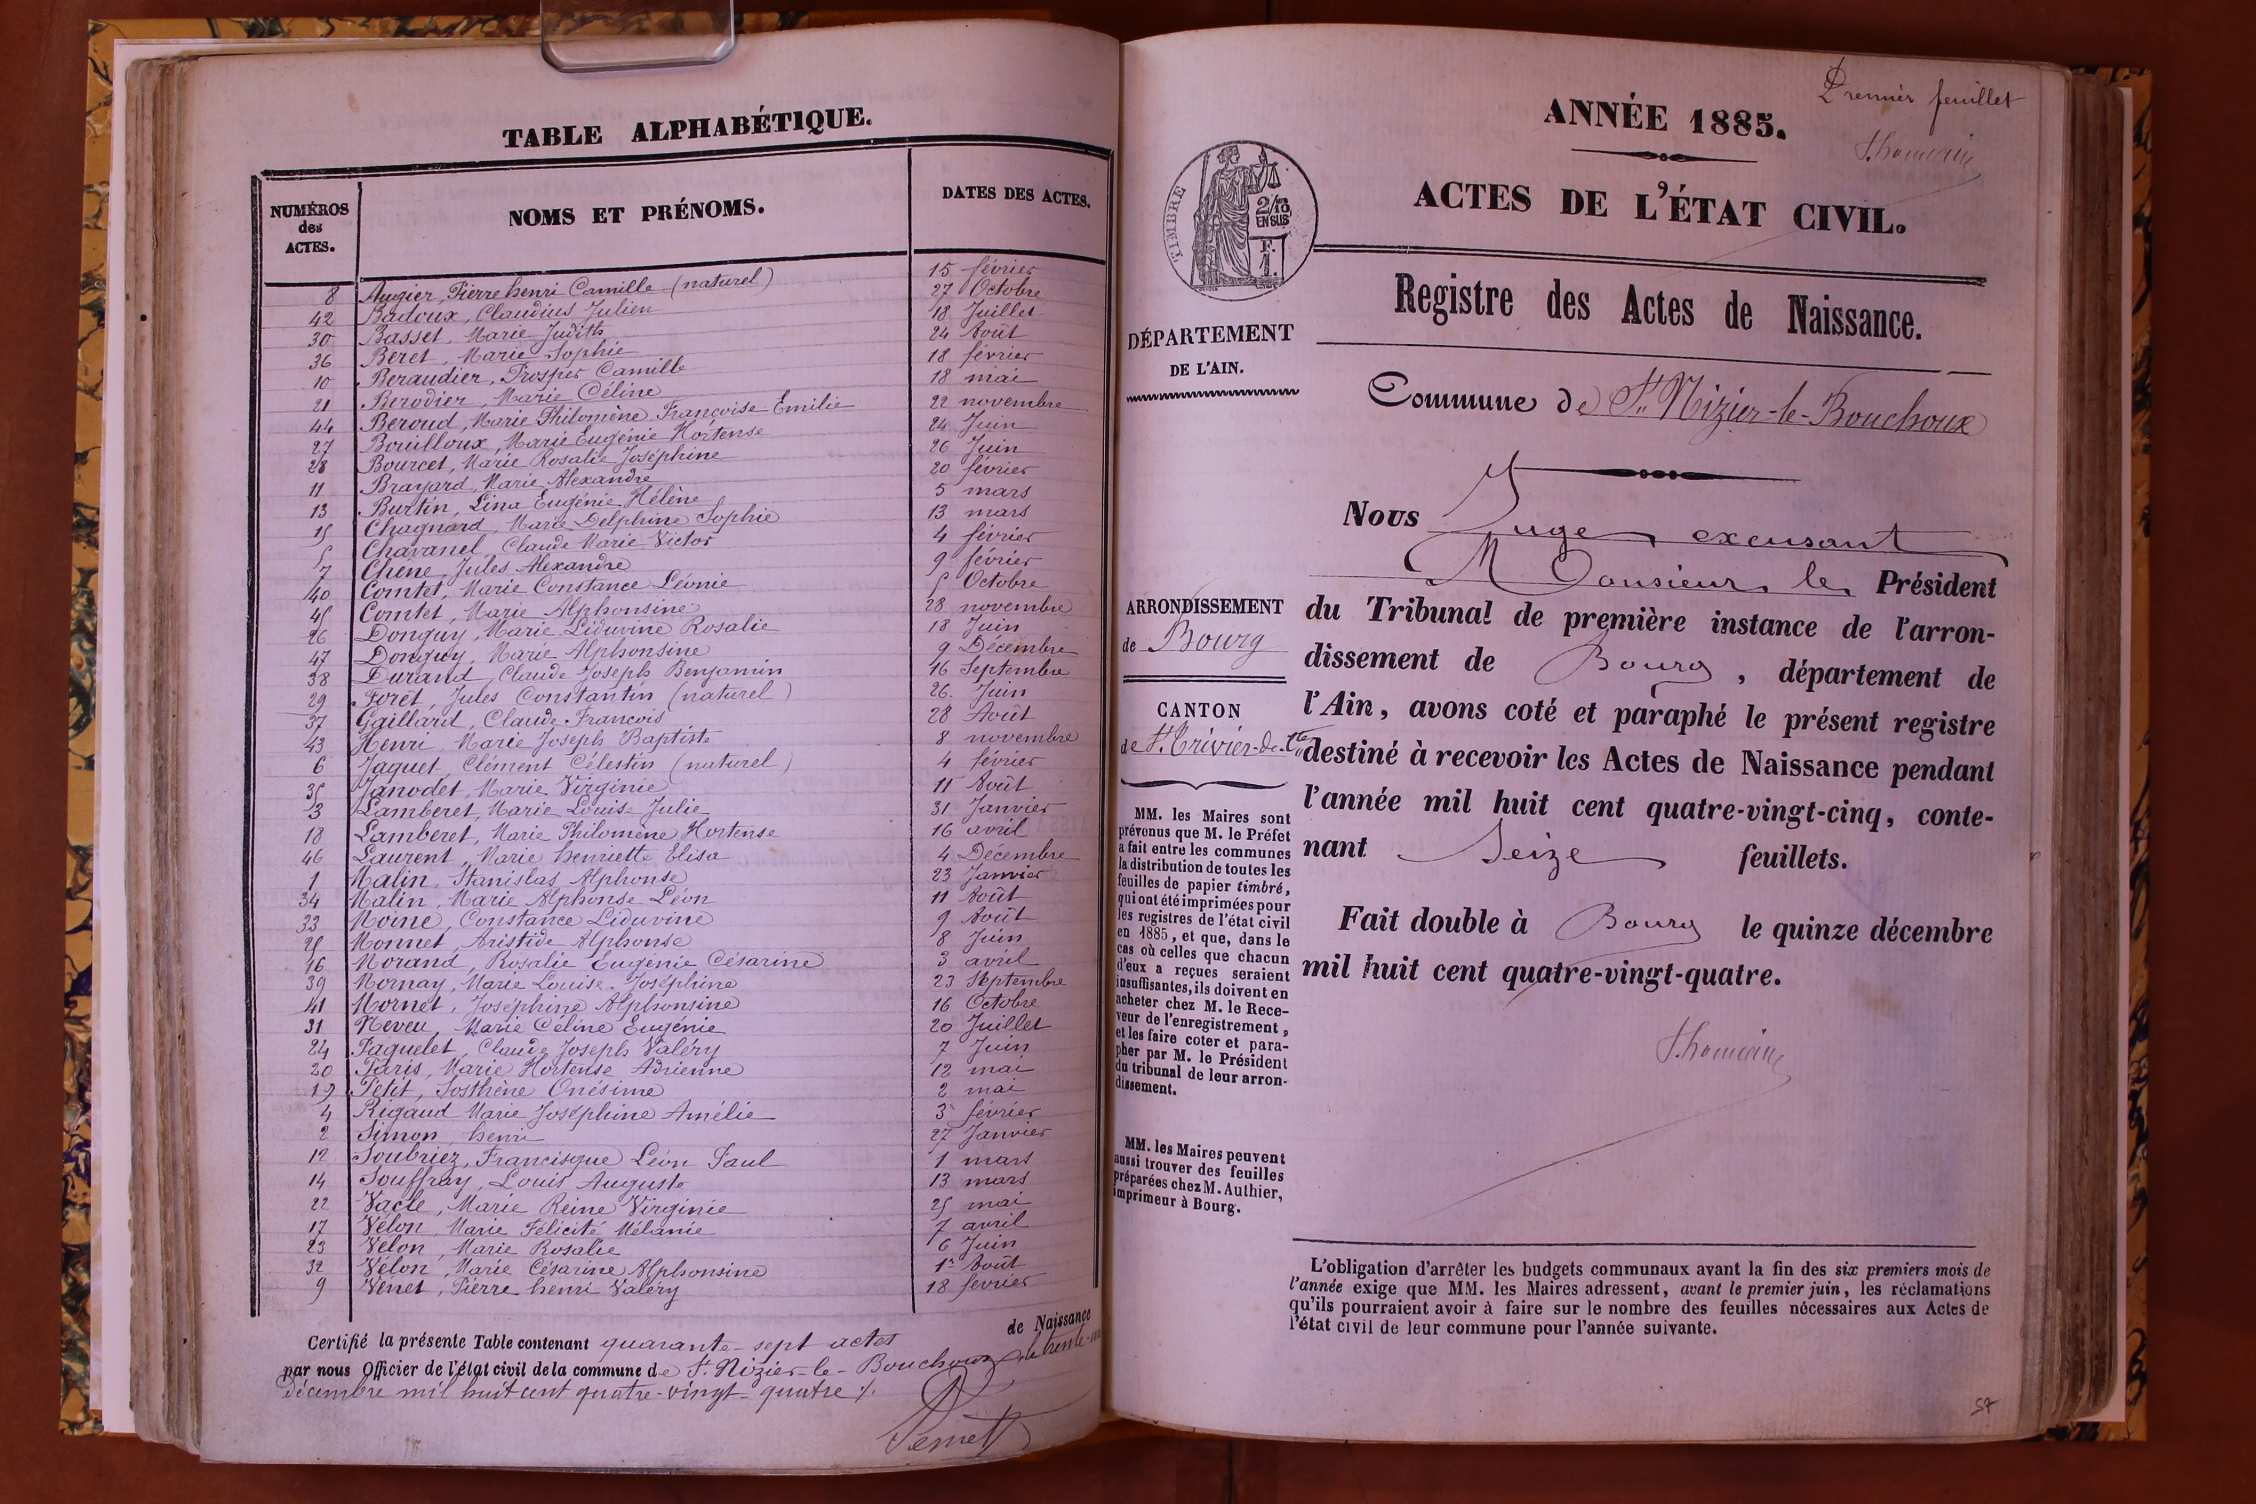 TABLE ALPHABÉTIQUE.
NUMÉROS des ACTES. NOMS ET PRÉNOMS. DATES DES ACTES.
8 Augier, Pierre henri Camille (naturel) 15 février
42 Badoux, Claudius Julien 27 Octobre
30 Basset, Marie Judith 18 Juillet
36 Beret, Marie Sophie 24 Août
10 Beraudier, Prosper Camille 18 février
21 Berodier, Marie Céline 18 mai
44 Beroud, Marie Philomène Françoise Emilie 22 novembre
27 Bouilloux, Marie Eugénie Hortense 24 Juin
28 Bourcet, Marie Rosalie Joséphine 26 Juin
11 Brayard, Marie Alexandre 20 février
13 Burtin, Lina Eugénie Hélène 5 mars
15 Chagnard, Marie Delphine Sophie 13 mars
5 Chavanel, Claude Marie Victor 4 février
7 Chene Jules Alexandre 9 février
40 Comtet, Marie Constance Léonie 5 Octobre
45 Comtet, Marie Alphonsine 28 novembre
26 Donguy, Marie Liduvine Rosalie 18 Juin
47 Donguy, Marie Alphonsine 9 Décembre
38 Durand, Claude Joseph Benjamin 16 Septembre
29 Foret, Jules Constantin (naturel) 26 Juin
37 Gaillard, Claude François 28 Août
43 Henri, Marie Joseph Baptiste 8 novembre
6 Jaquet, Clément Célestin (naturel) 4 février
35 Janodet, Marie Virginie 11 Août
3 Lamberet, Marie Louise Julie 31 Janvier
18 Lamberet, Marie Philomène Hortense 16 avril
46 Laurent, Marie henriette Elisa 4 Décembre
1 Malin, Stanislas Alphonse 23 Janvier
34 Malin, Marie Alphonse Léon 11 Août
33 Moine, Constance Liduvine 9 Août
25 Monnet, Aristide Alphonse 8 Juin
16 Morand, Rosalie Eugénie Césarine 3 avril
39 Mornay, Marie Louise Joséphine 23 Septembre
41 Mornet, Joséphine Alphonsine 16 Octobre
31 Neveu, Marie Céline Eugénie 20 Juillet
24 Paquelet, Claude Joseph Valéry 7 Juin
20 Paris, Marie Hortense Adrienne 12 mai
19 Petit, Sosthène Onésime 2 mai
4 Rigaud Marie Joséphine Amélie 3 février
2 Simon, henri 27 Janvier
12 Soubriez, Francisque Léon Paul 1 mars
14 Souffray, Louis Auguste 13 mars
22 Vacle, Marie Reine Virginie 25 mai
17 Vélon, Marie Félicité Mélanie 7 avril
23 Vélon, Marie Rosalie 6 Juin
32 Vélon, Marie Césarine Alphonsine 1er Août
9 Venet, Pierre henri Valéry 18 février
Certifié la présente Table contenant quarante-sept actes de Naissance
par nous Officier de l'état civil de la commune de St. Nizier-le-Bouchoux, le trente-un
décembre mil huit cent quatre-vingt-quatre
Premier feuillet
ANNÉE 1885.
ACTES DE L'ÉTAT CIVIL.
TIMBRE
2/10 EN SUS
F. 1.
Registre des Actes de Naissance.
DÉPARTEMENT
DE L'AIN.
Commune de St. Nizier-le-Bouchoux
Nous Juge excusant
Monsieur le Président
du Tribunal de première instance de l'arron-
dissement de Bourg, département de
l'Ain, avons coté et paraphé le présent registre
destiné à recevoir les Actes de Naissance pendant
l'année mil huit cent quatre-vingt-cinq, conte-
nant Seize feuillets.
Fait double à Bourg le quinze décembre
mil huit cent quatre-vingt-quatre.
ARRONDISSEMENT
de Bourg
CANTON
de St. Trivier-de-Ctes
MM. les Maires sont
prévenus que M. le Préfet
a fait entre les communes
la distribution de toutes les
feuilles de papier timbré,
qui ont été imprimées pour
les registres de l'état civil
en 1885, et que, dans le
cas où celles que chacun
d'eux a reçues seraient
insuffisantes, ils doivent en
acheter chez M. le Rece-
veur de l'enregistrement,
et les faire coter et para-
pher par M. le Président
du tribunal de leur arron-
dissement.
MM. les Maires peuvent
aussi trouver des feuilles
préparées chez M. Authier,
imprimeur à Bourg.
L'obligation d'arrêter les budgets communaux avant la fin des six premiers mois de
l'année exige que MM. les Maires adressent, avant le premier juin, les réclamations
qu'ils pourraient avoir à faire sur le nombre des feuilles nécessaires aux Actes de
l'état civil de leur commune pour l'année suivante.
57